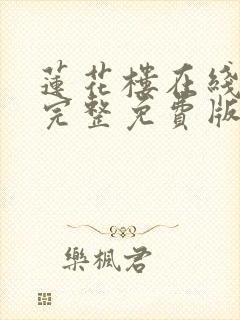 蓮花樓在綫
完整免費版
樂楓君